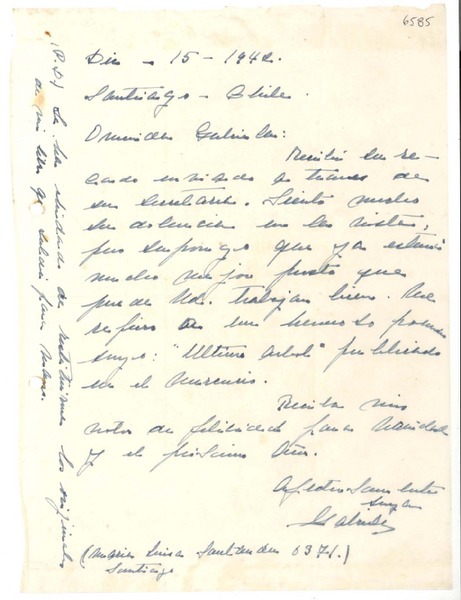 6585
Dic - 15 - 1942.
Santiago - Chile.
Querida Gabriela:
Recibí su re-
cado enviado a través de
su secretaria. Siento mucho
su dolencia en la vista,
pues supongo que ya estará
mucho mejor puesto que
puede Ud. trabajar bien. Me
refiero a un hermoso poema
suyo: "Ultimo árbol" publicado
en el Mercurio.
Reciba mis
votos de felicidad para Navidad
y el próximo Año.
Afectuosamente
suya
(María Luisa Santander 0371.)
Santiago
(P.D) Se ha de los originales
de mi libro que saldrá para